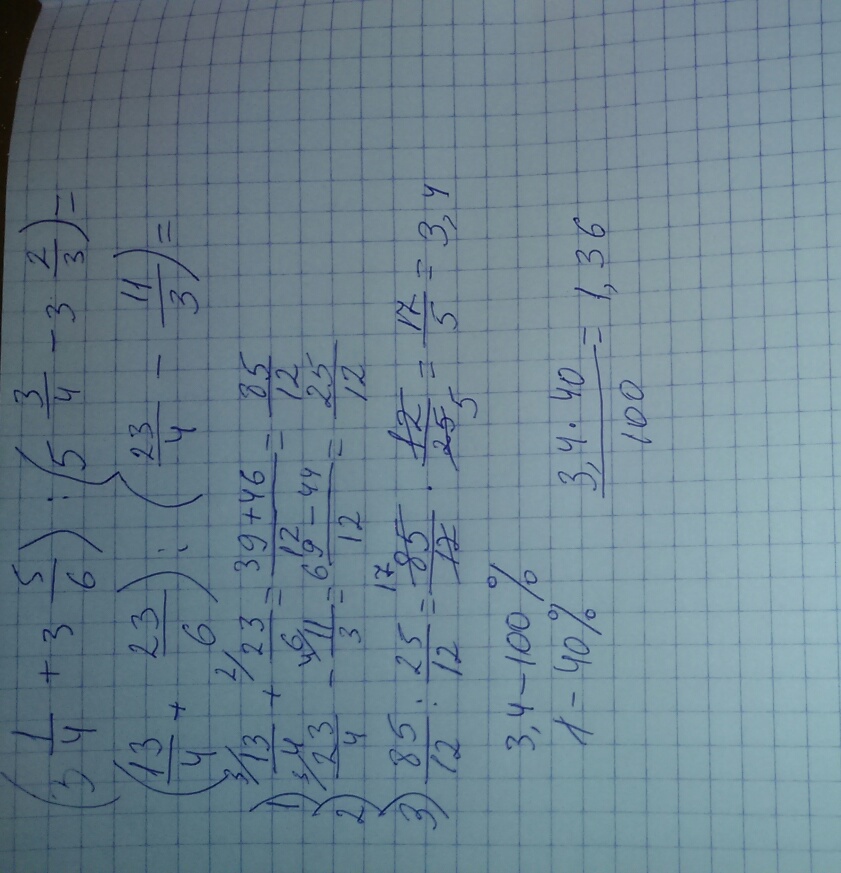 (3 1/4 + 3 5/6) : (5 3/4 - 3 2/3) =
(13/4 + 23/6) : (23/4 - 11/3) =
1) 3/ 13/4 + 2/ 23/6 = 39+46/12 = 85/12
2) 3/ 23/4 - 4/ 11/3 = 69-44/12 = 25/12
3) 85/12 : 25/12 = 17 85/12 · 12/25 5 = 17/5 = 3,4
3,4 - 100%
1 - 40%
3,4 · 40/100 = 1,36